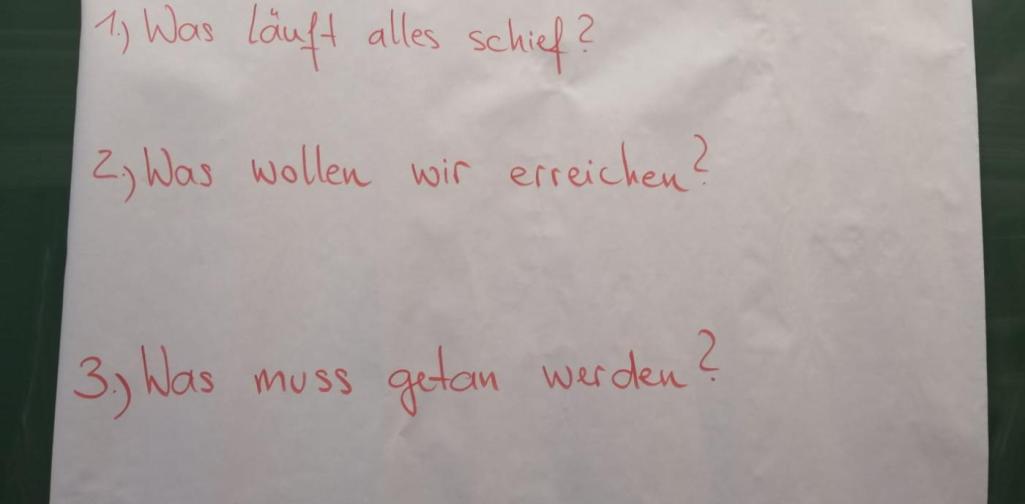 1.) Was läuft alles schief?
2.) Was wollen wir erreichen?
3.) Was muss getan werden?